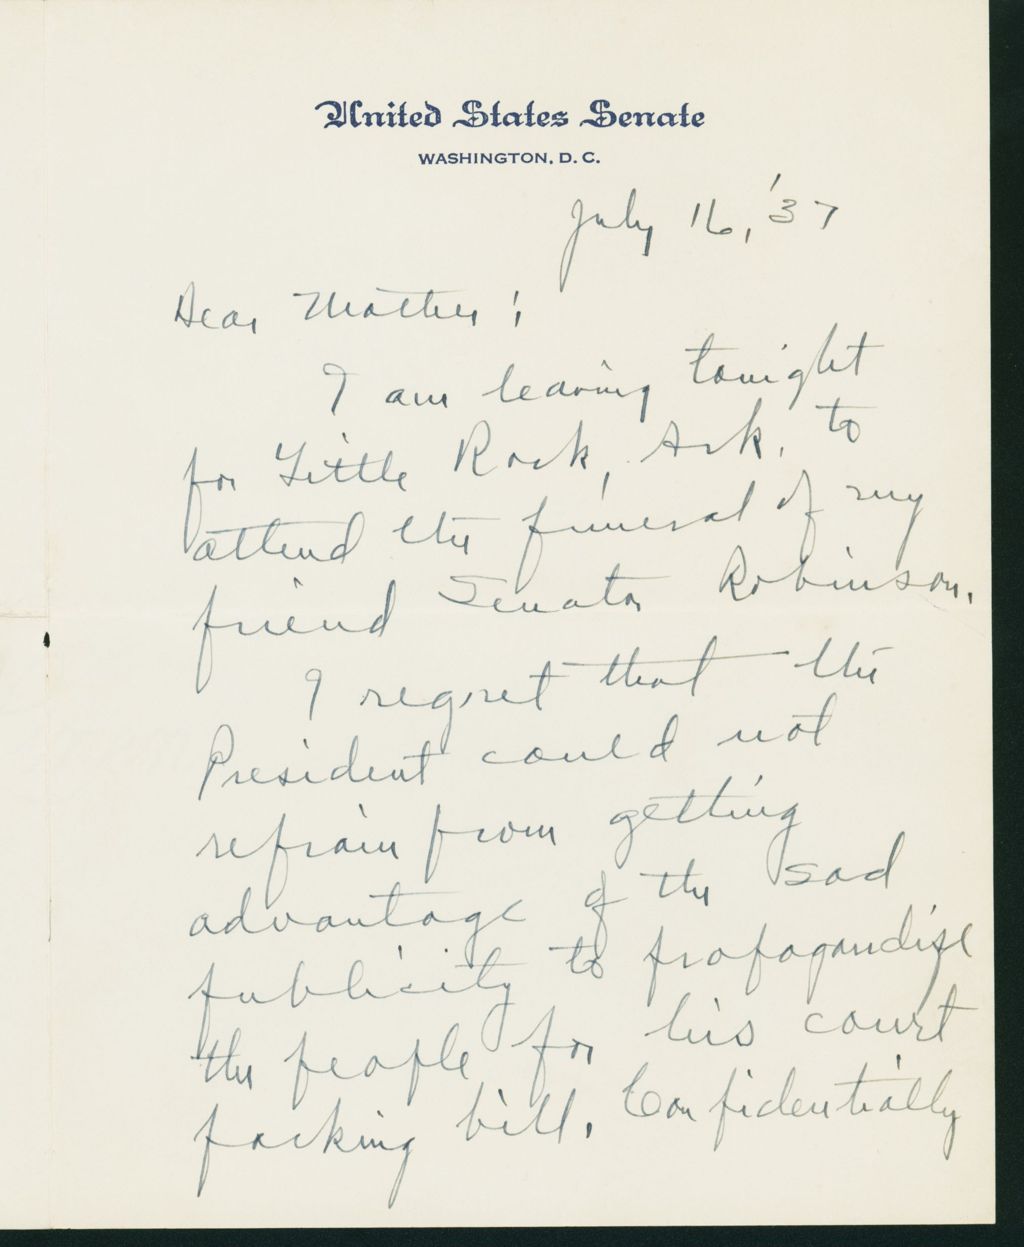 United States Senate
WASHINGTON, D. C.
July 16, '37
Dear Mother:
I am leaving tonight
for Little Rock, Ark. to
attend the funeral of my
friend Senator Robinson.
I regret that the
President could not
refrain from getting
advantage of the sad
publicity to propagandize
the people for his court
packing bill. Confidentially